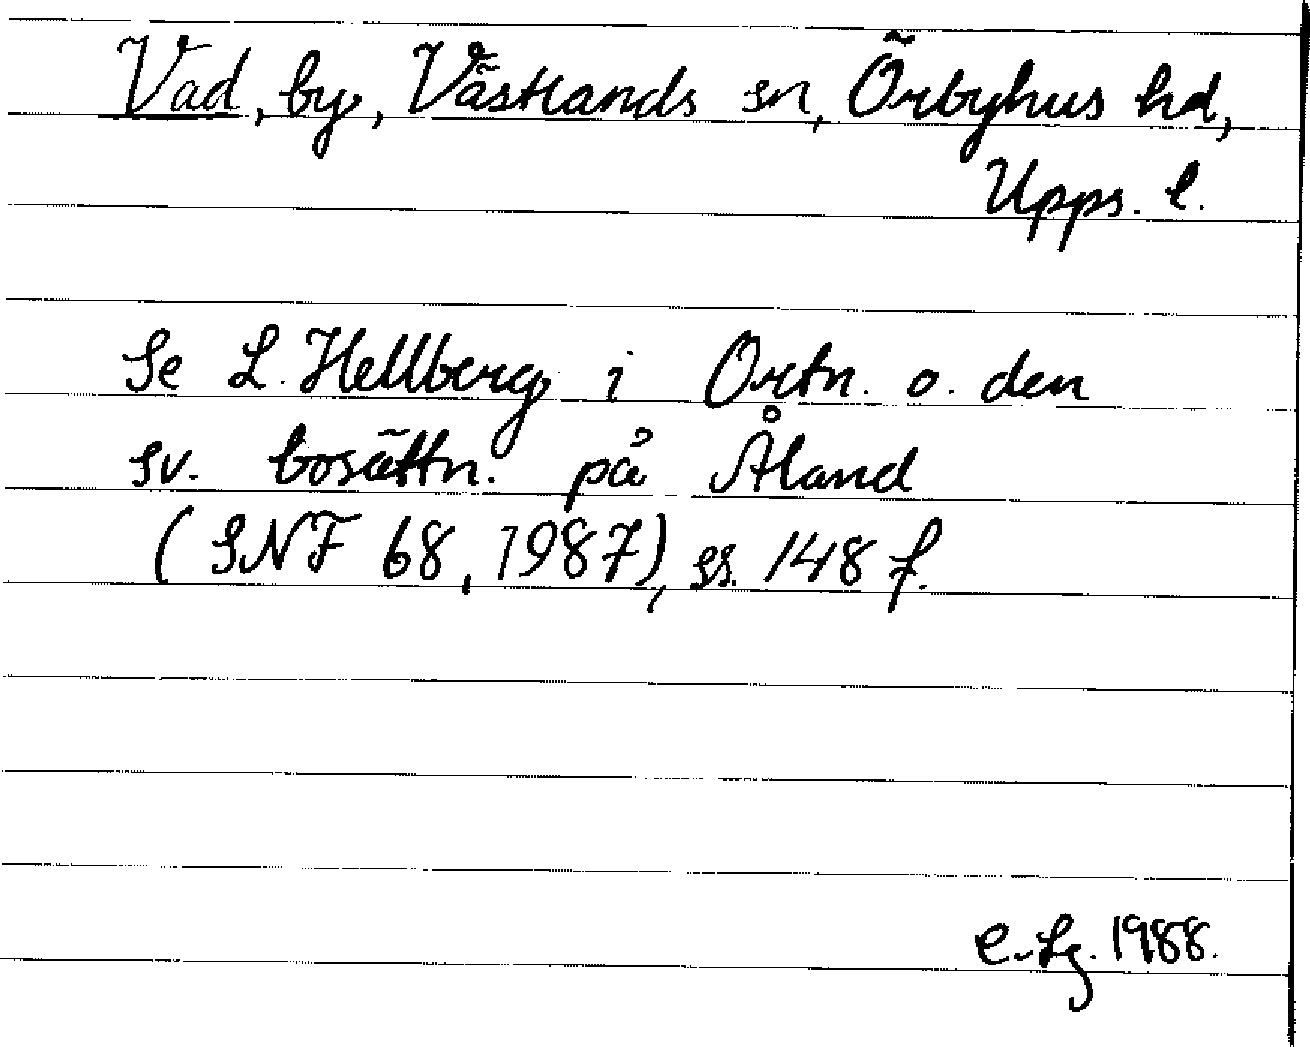 Vad, by, Västlands sn, Örbyhus hd,
Upps. l.
Se L. Hellberg i Ortn. o. den
sv. bosättn. på Åland
(SNF 68, 1987), ss. 148 f.
1988.